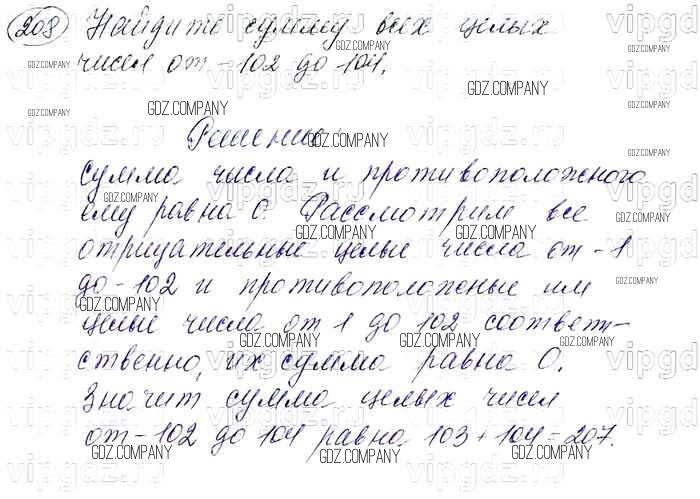 208 Найдите сумму всех целых
чисел от -102 до 104.
Решение:
сумма числа и противоположного
ему равна 0. Рассмотрим все
отрицательные целые числа от -1
до -102 и противоположные им
целые числа от 1 до 102 соответ-
ственно, их сумма равна 0.
Значит сумма целых чисел
от -102 до 104 равна 103 + 104 = 207.
GDZ.COMPANY
vipgdz.ru